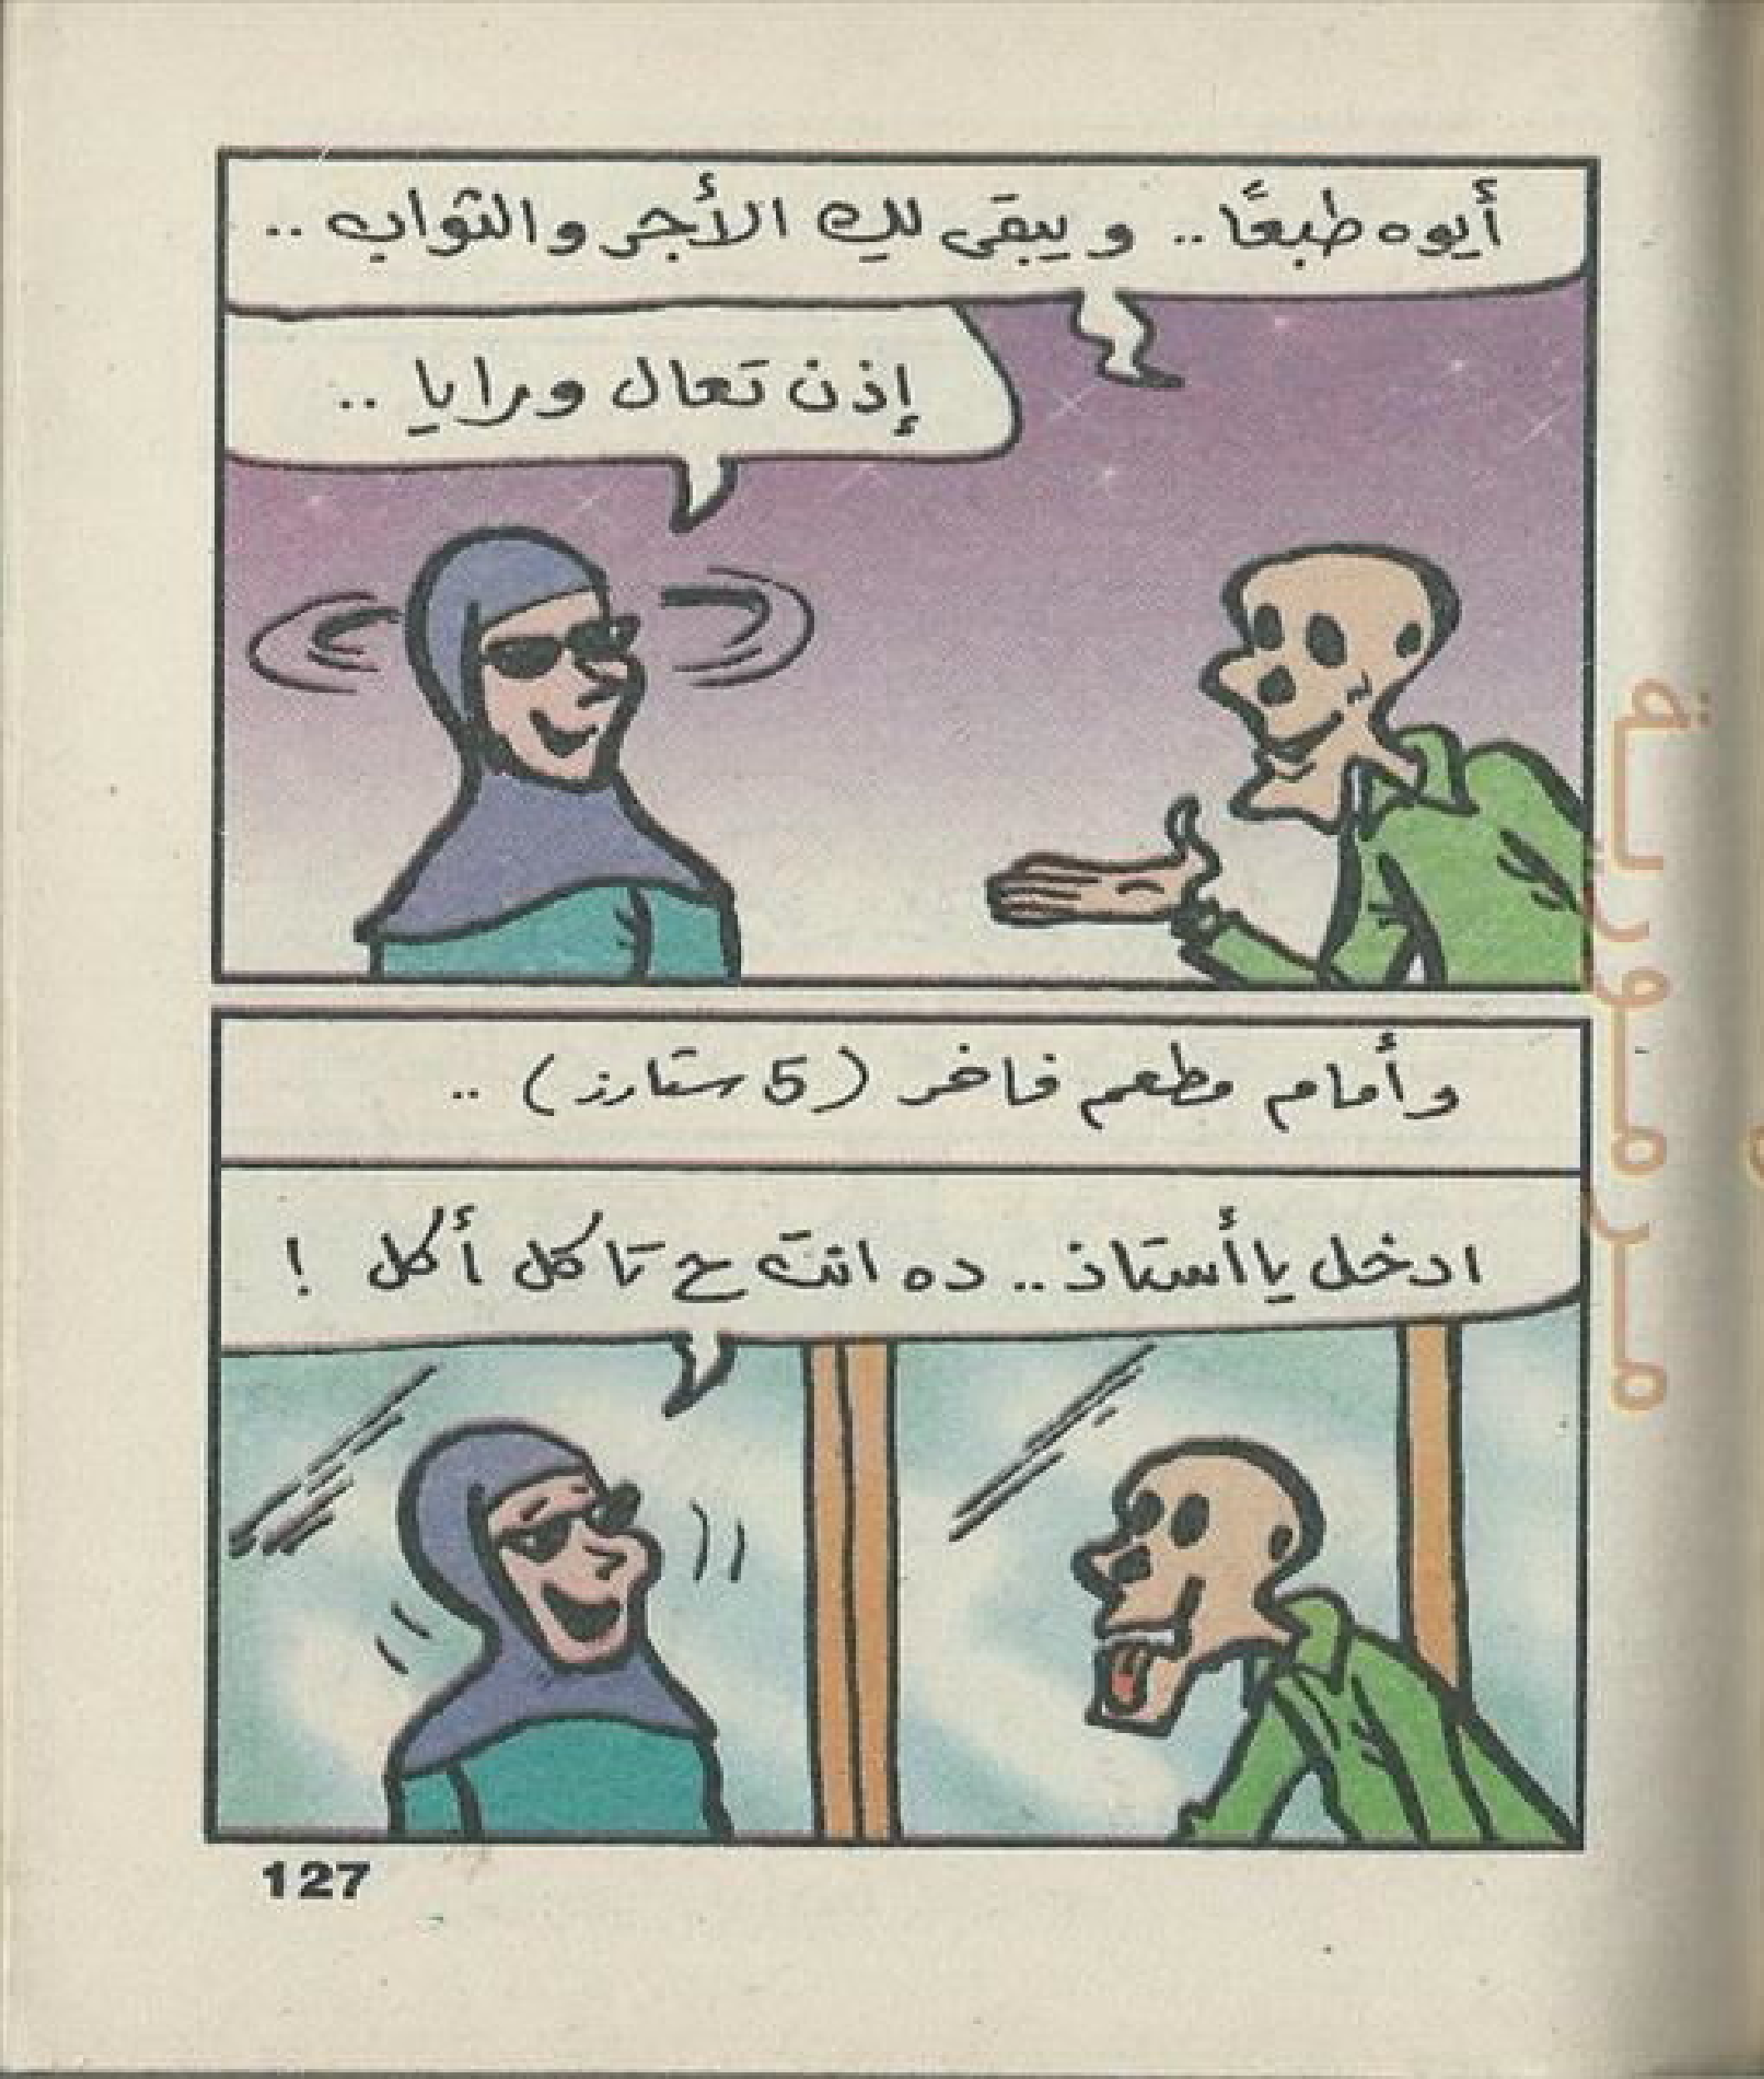 أيوه طبعًا.. ويبقى لكِ الأجر والثواب..
إذن تعال ورايا..
وأمام مطعم فاخر (5 ستارز)..
ادخل يا أستاذ.. ده انت ح تاكل أكل!
مرمورية
127